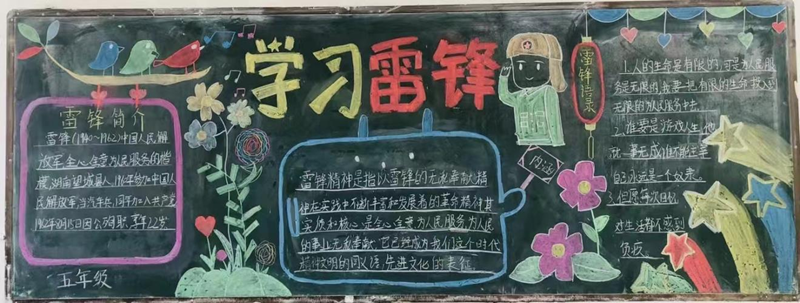 学习雷锋
雷锋简介
雷锋(1940~1962)中国人民解
放军全心全意为民服务的楷
模,湖南望城县人,1960年参加中国人
民解放军当汽车兵,同年加入共产党
1962年8月15日因公殉职,享年22岁
五年级
雷锋精神是指以雷锋的无私奉献精
神在实践中不断丰富和发展着的革命精神其
实质和核心是全心全意为人民服务为人民
的事业无私奉献,它已经成为我们这个时代
精神文明的同义语先进文化的表征
雷锋语录
1.人的生命是有限的,可是为人民服
务是无限的,我要把有限的生命投入到
无限的为人民服务中去
2.谁要是游戏人生,他
就一事无成,
永远是一个奴隶。
3.但愿每次回忆,
对生活都不感到
负疚。